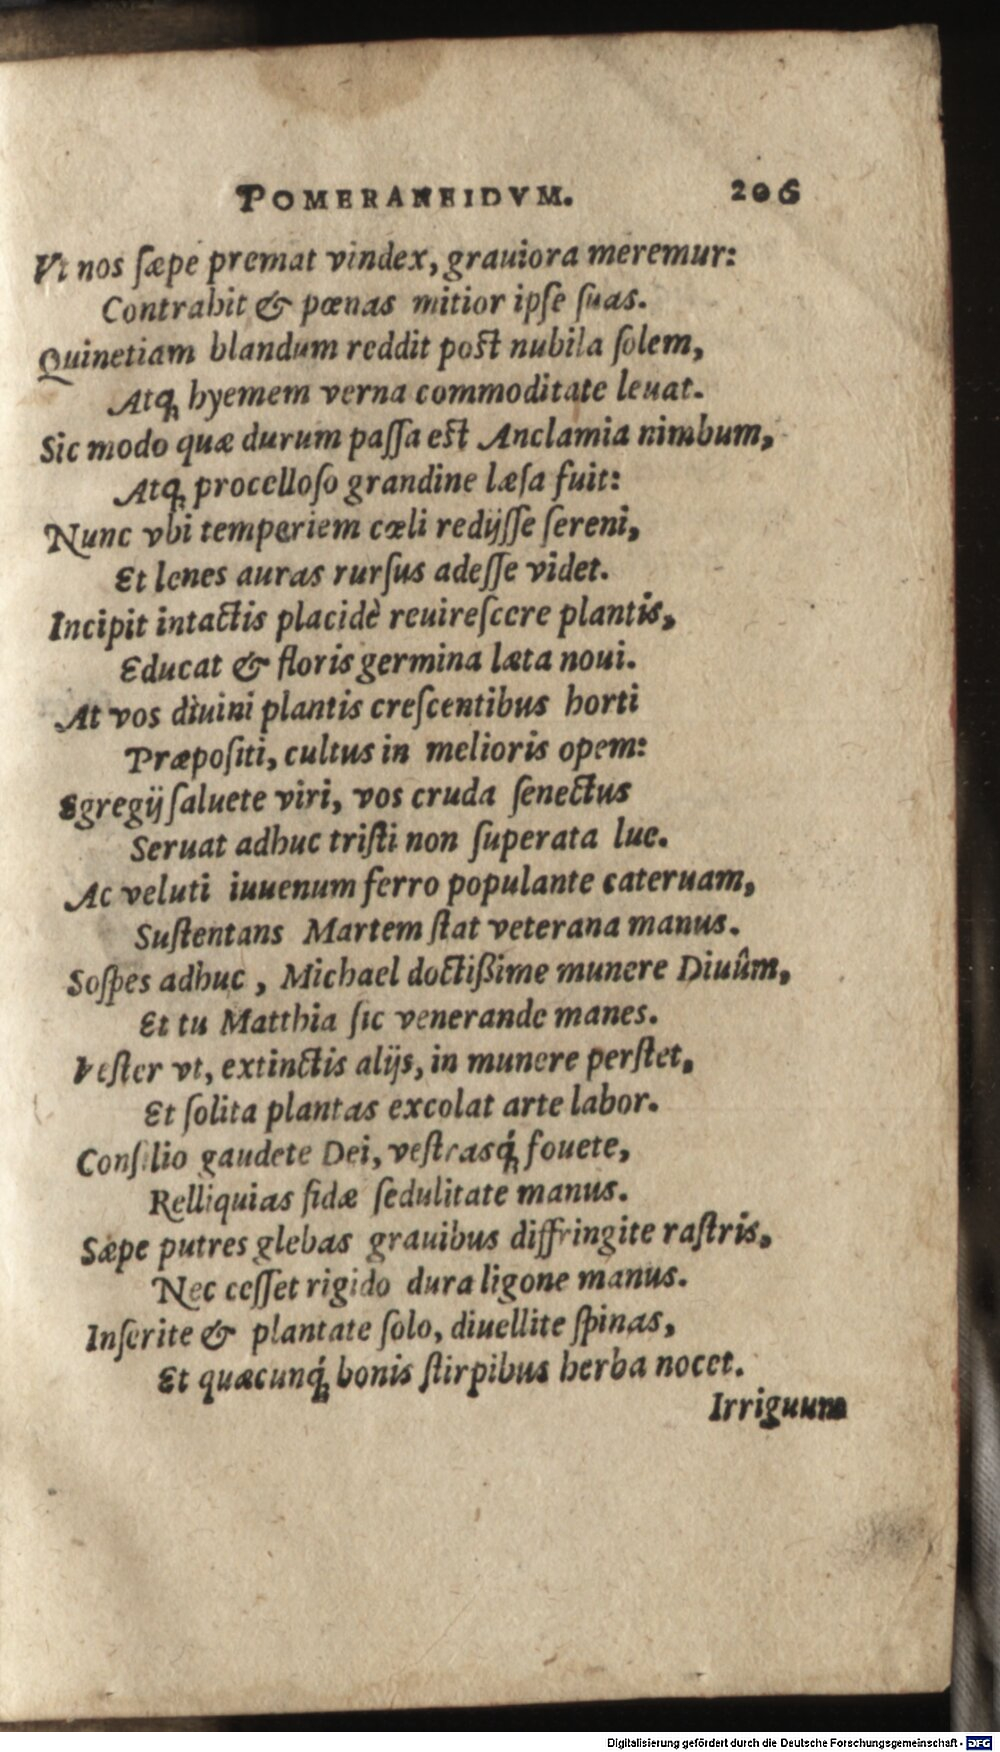 POMERANEIDVM. 206
Vt nos sæpe premat vindex, grauiora meremur:
Contrahit & pœnas mitior ipse suas.
Quinetiam blandum reddit post nubila solem,
Atq; hyemem verna commoditate leuat.
Sic modo quæ durum passa est Anclamia nimbum,
Atq; procelloso grandine læsa fuit:
Nunc vbi temperiem cœli redijsse sereni,
Et lenes auras rursus adesse videt.
Incipit intactis placidè reuirescere plantis,
Educat & floris germina læta noui.
At vos diuini plantis crescentibus horti
Præpositi, cultus in melioris opem:
Egregij saluete viri, vos cruda senectus
Seruat adhuc tristi non superata lue.
Ac veluti iuuenum ferro populante cateruam,
Sustentans Martem stat veterana manus.
Sospes adhuc, Michael doctißime munere Diuûm,
Et tu Matthia sic venerande manes.
Vester vt, extinctis alijs, in munere perstet,
Et solita plantas excolat arte labor.
Consilio gaudete Dei, vestrasq́; fouete,
Relliquias fidæ sedulitate manus.
Sæpe putres glebas grauibus diffringite rastris,
Nec cesset rigido dura ligone manus.
Inserite & plantate solo, diuellite spinas,
Et quæcunq́; bonis stirpibus herba nocet.
Irriguum
Digitalisierung gefördert durch die Deutsche Forschungsgemeinschaft - DFG